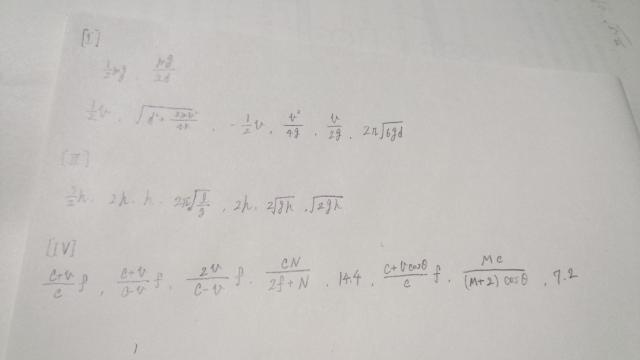 [I]
1/2 mg, Mg/2d
1/2 v, √(d² + mv²/4k), -1/2 v, v²/4g, v/2g, 2π√6gd
[II]
3/2 h, 2h, h, 2π√(l/g), 2h, 2√gh, √2gh
[IV]
(c+v)/c f, (c+v)/(c-v) f, 2v/(c-v) f, cN/(2f+N), 14.4, (c+v cosθ)/c f, Mc/((M+2) cosθ), 7.2